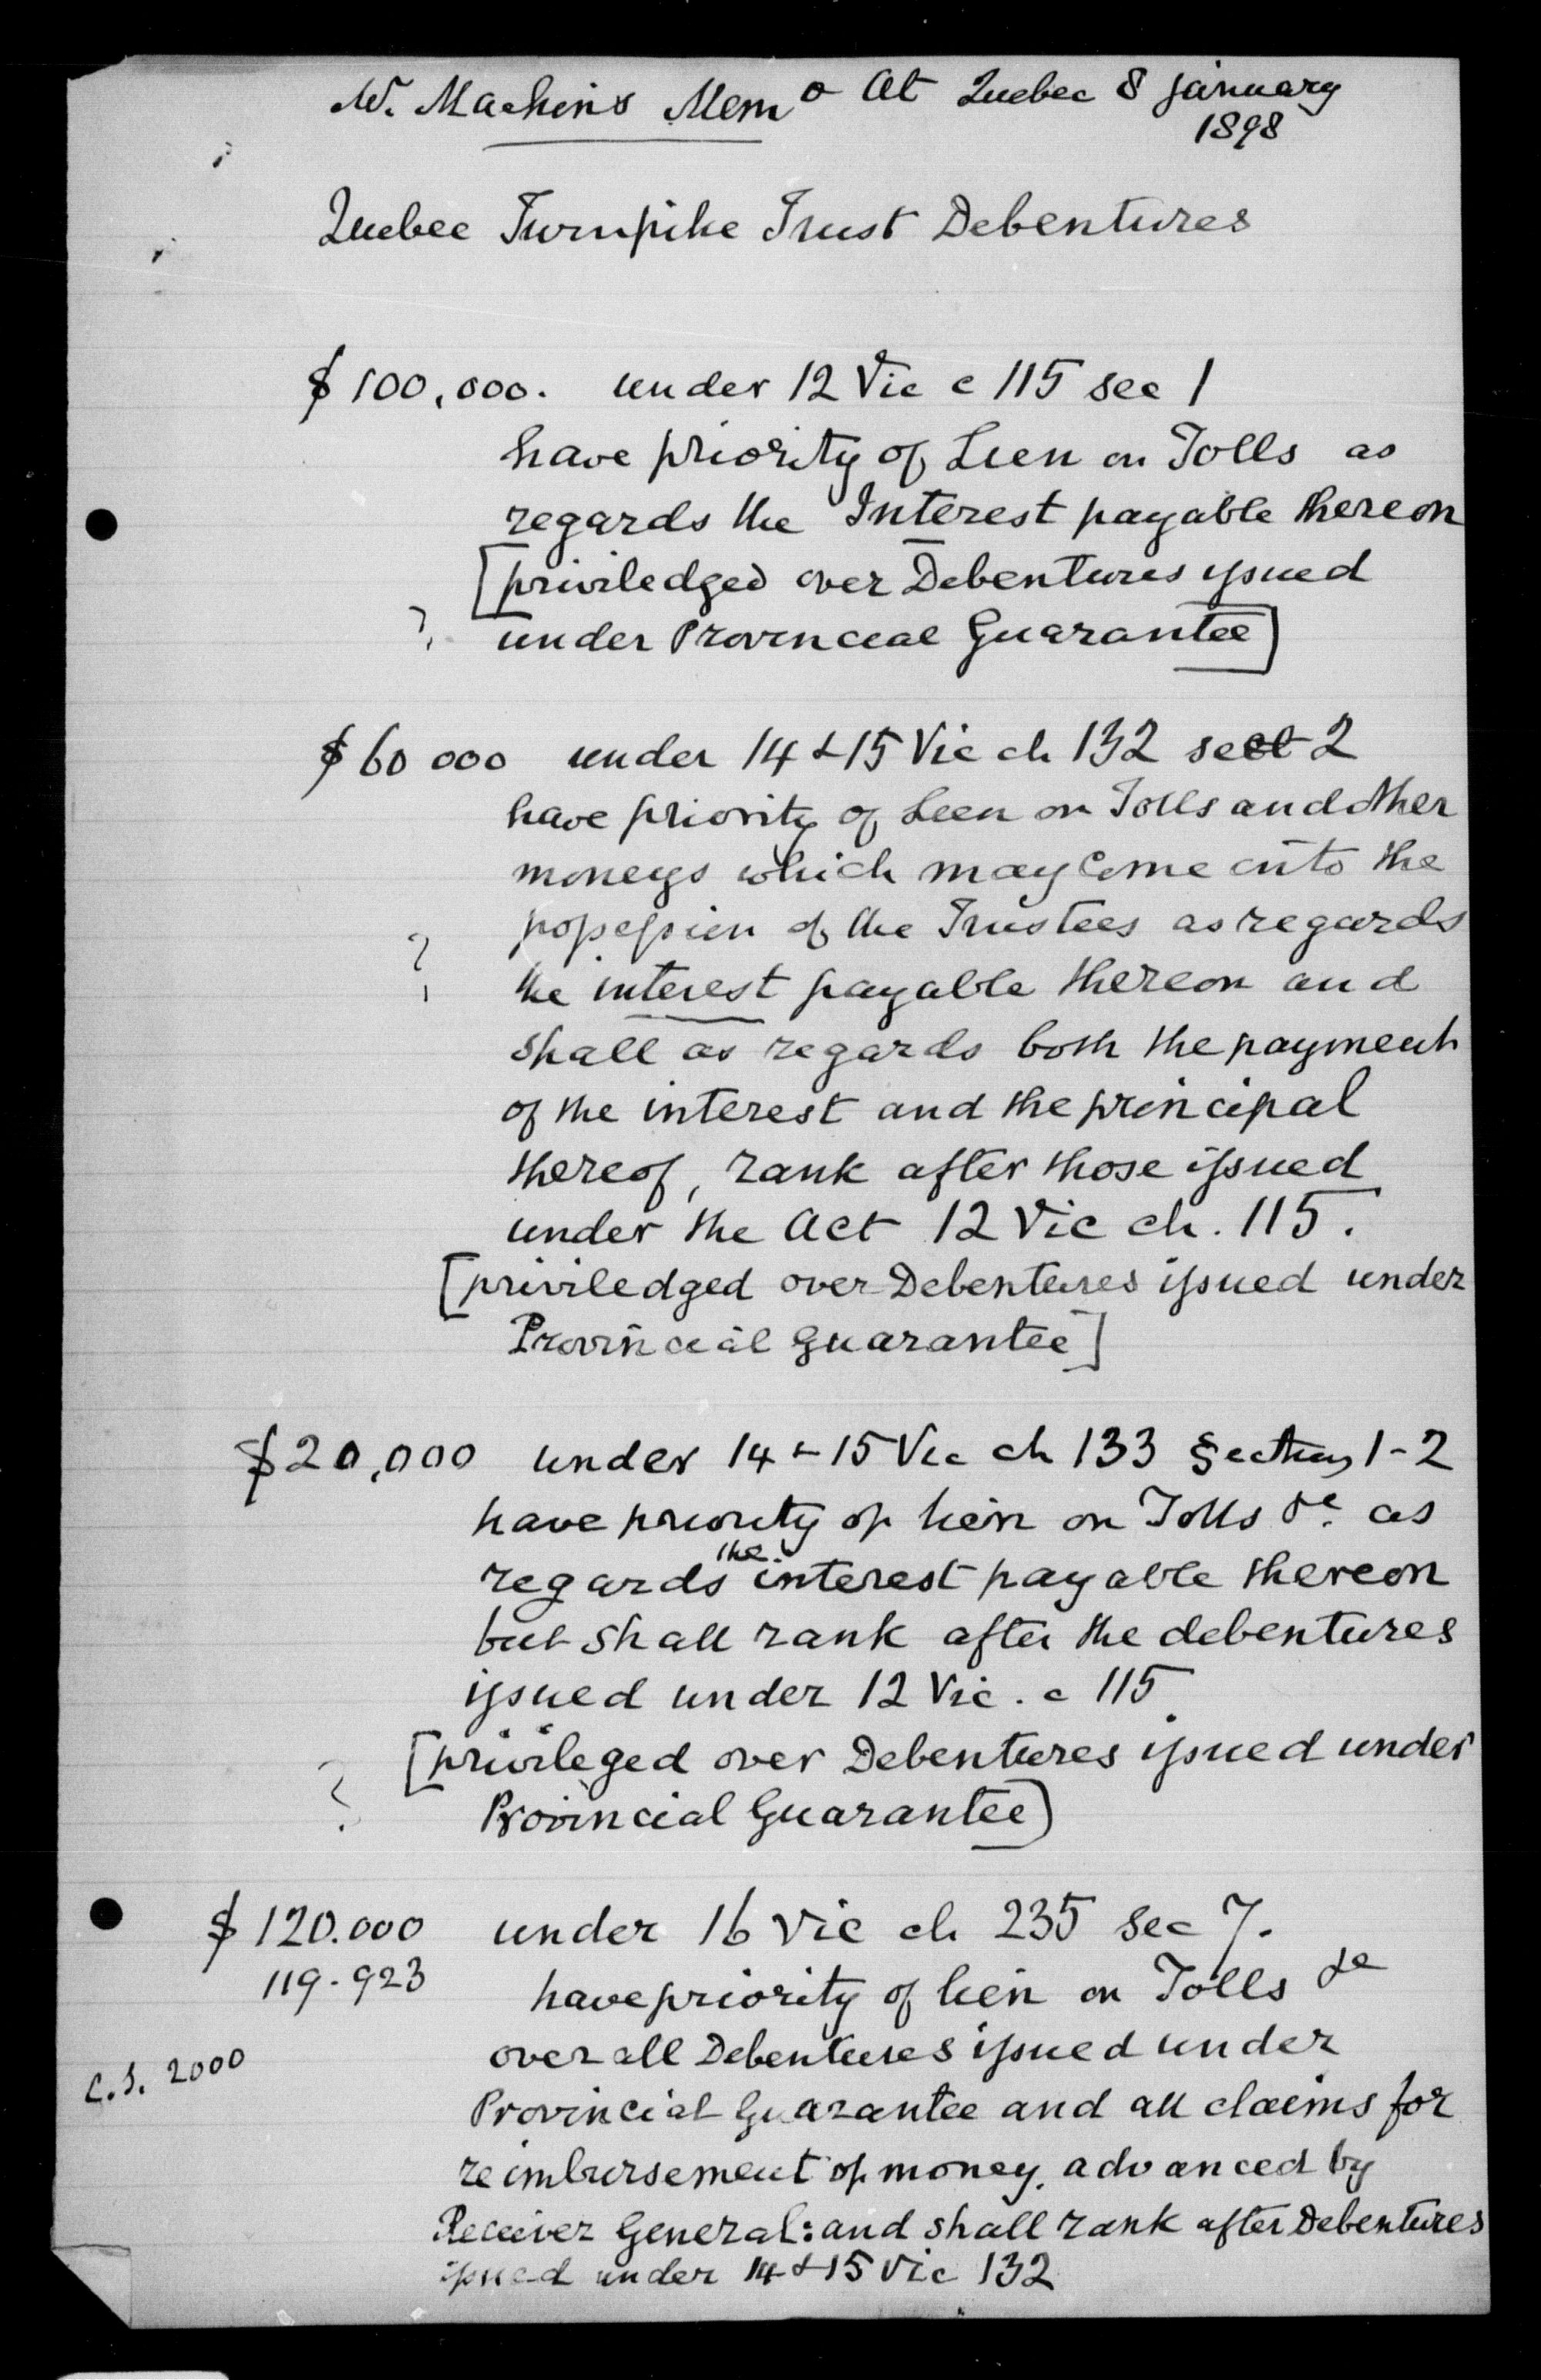 W. Machin's Memo At Quebec 8 January
1898
Quebec Turnpike Trust Debentures
$100,000. under 12 Vic c 115 sec 1
have priority of Lien on Tolls as
regards the Interest payable thereon
[priviledged over Debentures issued
? under Provincial Guarantee]
$60 000 under 14 & 15 Vic ch 132 sect 2
have priority of Lien on Tolls and other
moneys which may come into the
possession of the Trustees as regards
? the interest payable thereon and
shall as regards both the payment
of the interest and the principal
thereof, rank after those issued
under the Act 12 Vic ch. 115.
[priviledged over Debentures issued under
Provincial Guarantee]
$20,000 under 14 & 15 Vic ch 133 Section 1-2
have priority of lien on Tolls &c. as
regards the interest payable thereon
but shall rank after the debentures
issued under 12 Vic. c 115.
[privileged over Debentures issued under
? Provincial Guarantee)
$120.000 under 16 Vic ch 235 Sec 7.
119.923 have priority of lien on Tolls &c
over all Debentures issued under
C.S. 2000
Provincial Guarantee and all claims for
reimbursement of money advanced by
Receiver General: and shall rank after Debentures
issued under 14 & 15 Vic 132